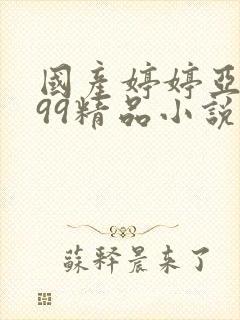 國産婷婷亞
99精品小說
蘇释晨来了